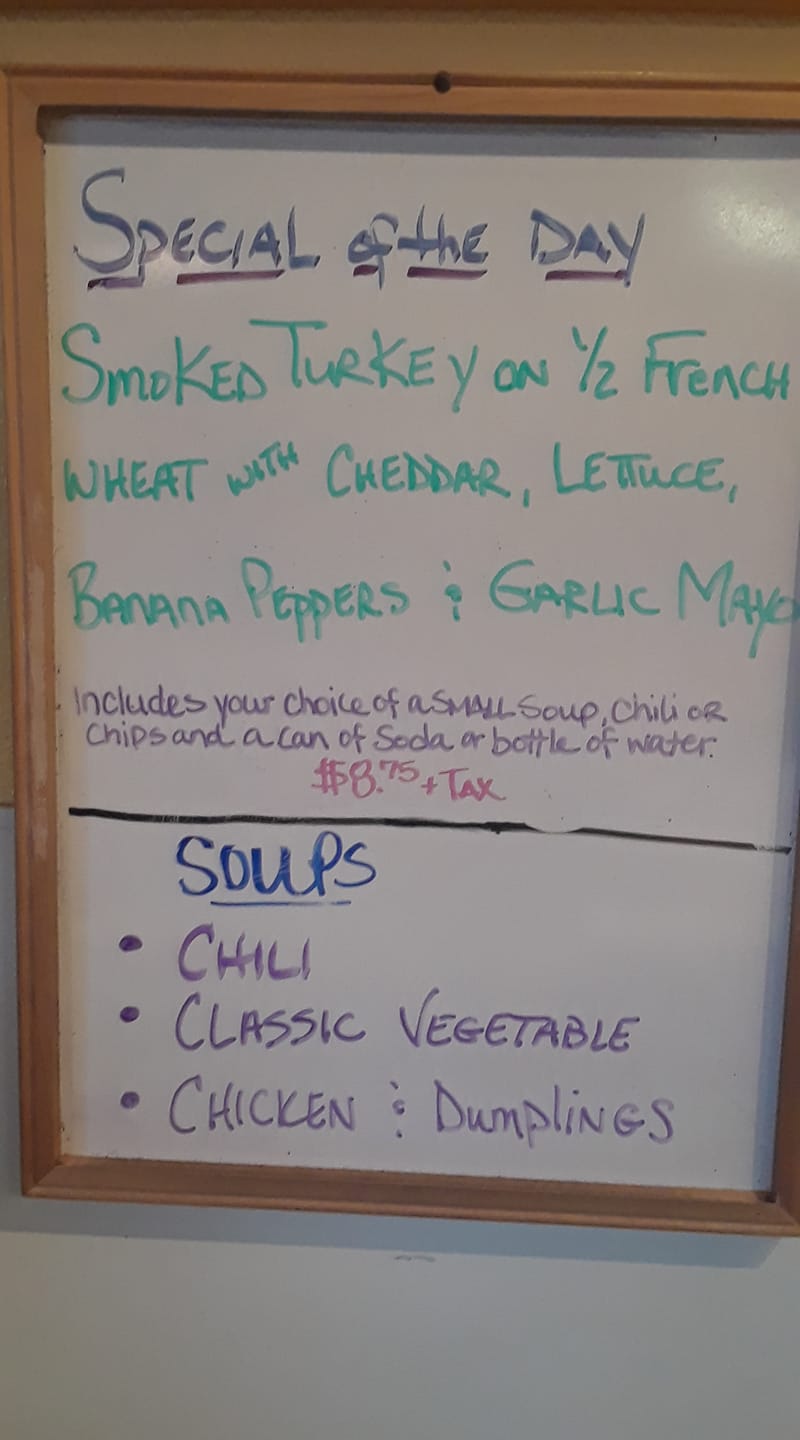 SPECIAL of the DAY
SMOKED TURKEY ON 1/2 FRENCH
WHEAT WITH CHEDDAR, LETTUCE,
BANANA PEPPERS & GARLIC MAYO
Includes your choice of a SMALL Soup, Chili OR
Chips and a can of Soda or bottle of water.
$8.75 + TAX
SOUPS
• CHILI
• CLASSIC VEGETABLE
• CHICKEN & DumplINGS